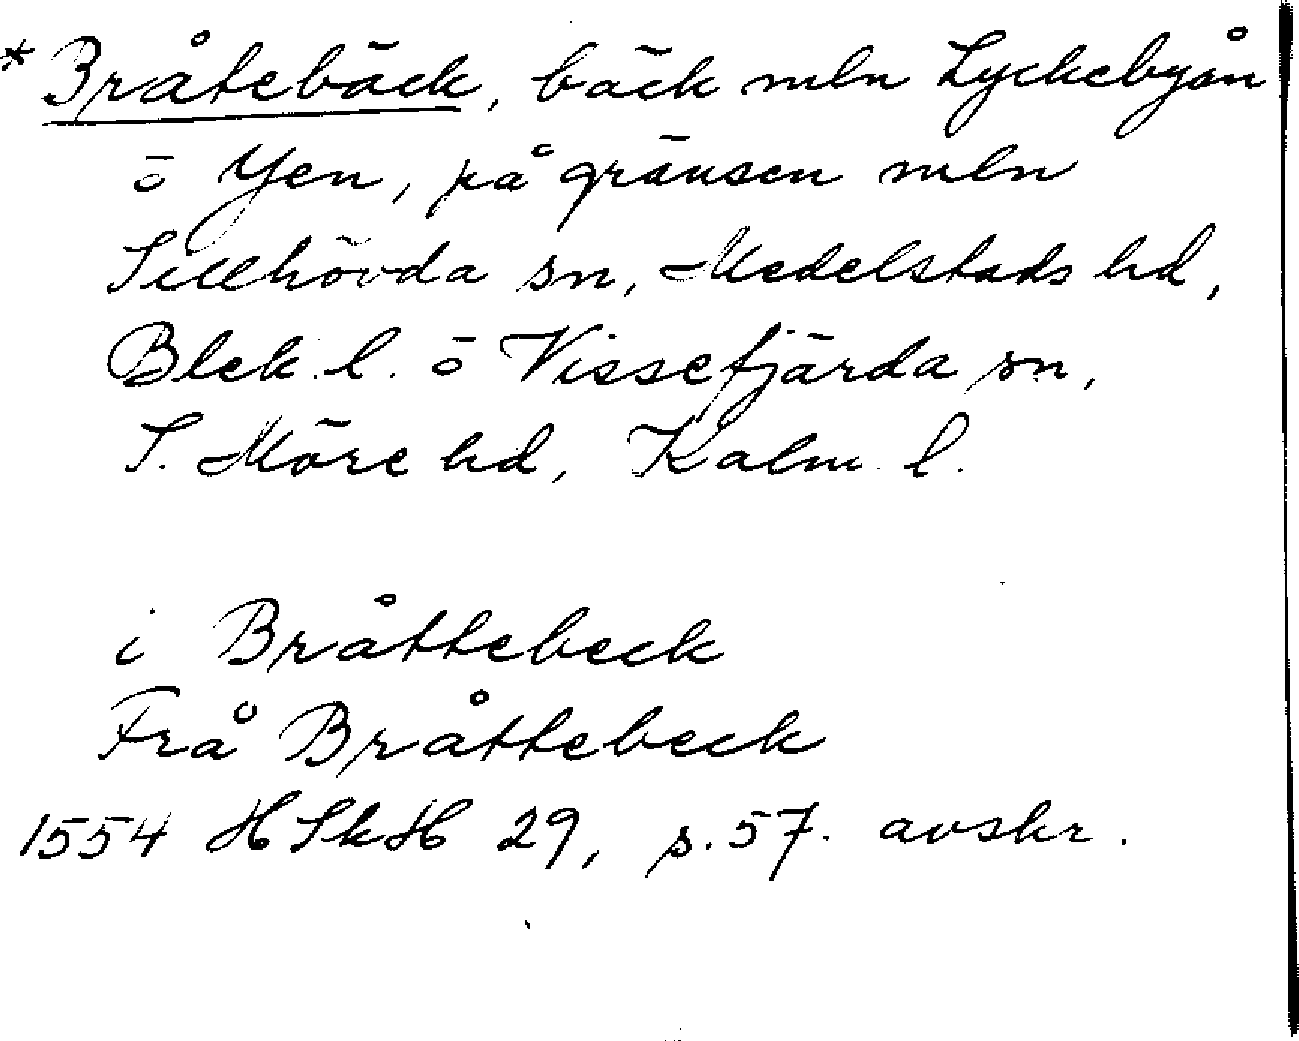 * Bråtebäck, bäck mln Lyckebyån
o Yen, på gränsen mln
Sillhövda sn, Medelstads hd,
Blek. l. o Vissefjärda sn,
S. Möre hd, Kalm. l.
i Bråttebeck
Frå Bråttebeck
1554 HSkH 29, s. 57. avskr.